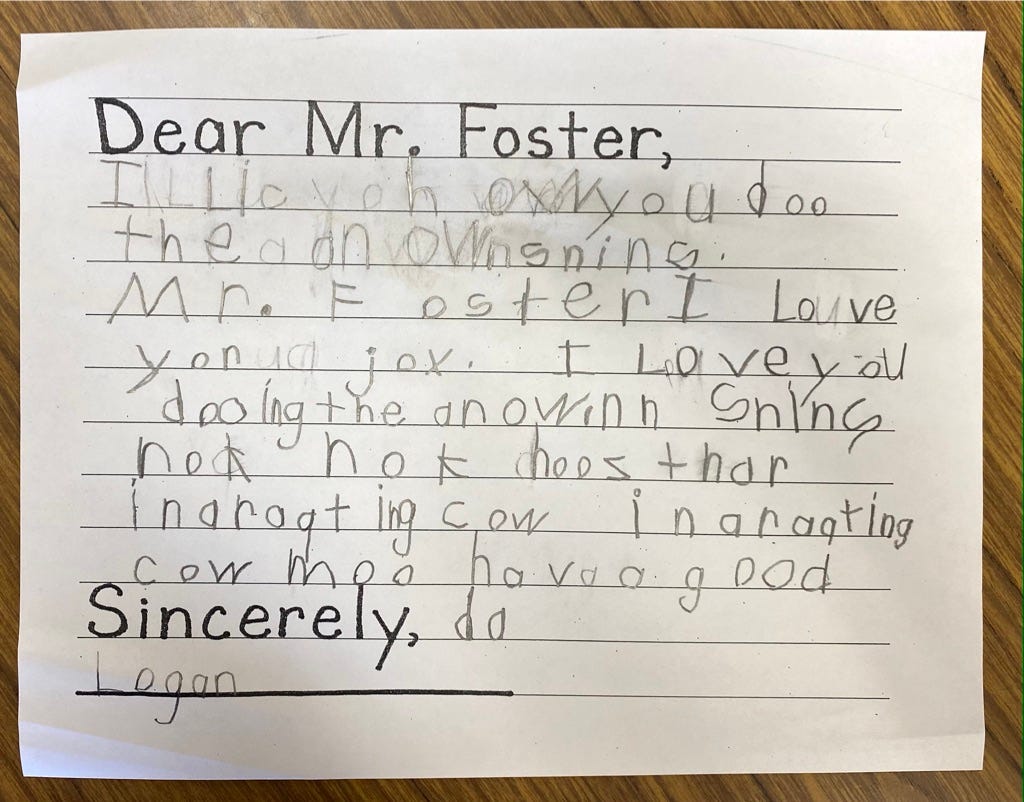 Dear Mr. Foster,
I Lic yoh owyou doo
the anownsning.
Mr. FosterI Lave
yon jox. I Love you
dooing the anowinn Sning
nok nok hoos thar
inaraqting cow inaraqting
cow moo havaa good
Sincerely, da
Logan